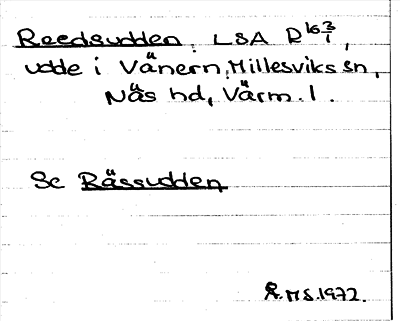 Reedsudden, LSA R 163/1,
udde i Vänern, Millesviks sn,
Näs hd, Värm. l.
Se Rässudden
R.M.S. 1972.